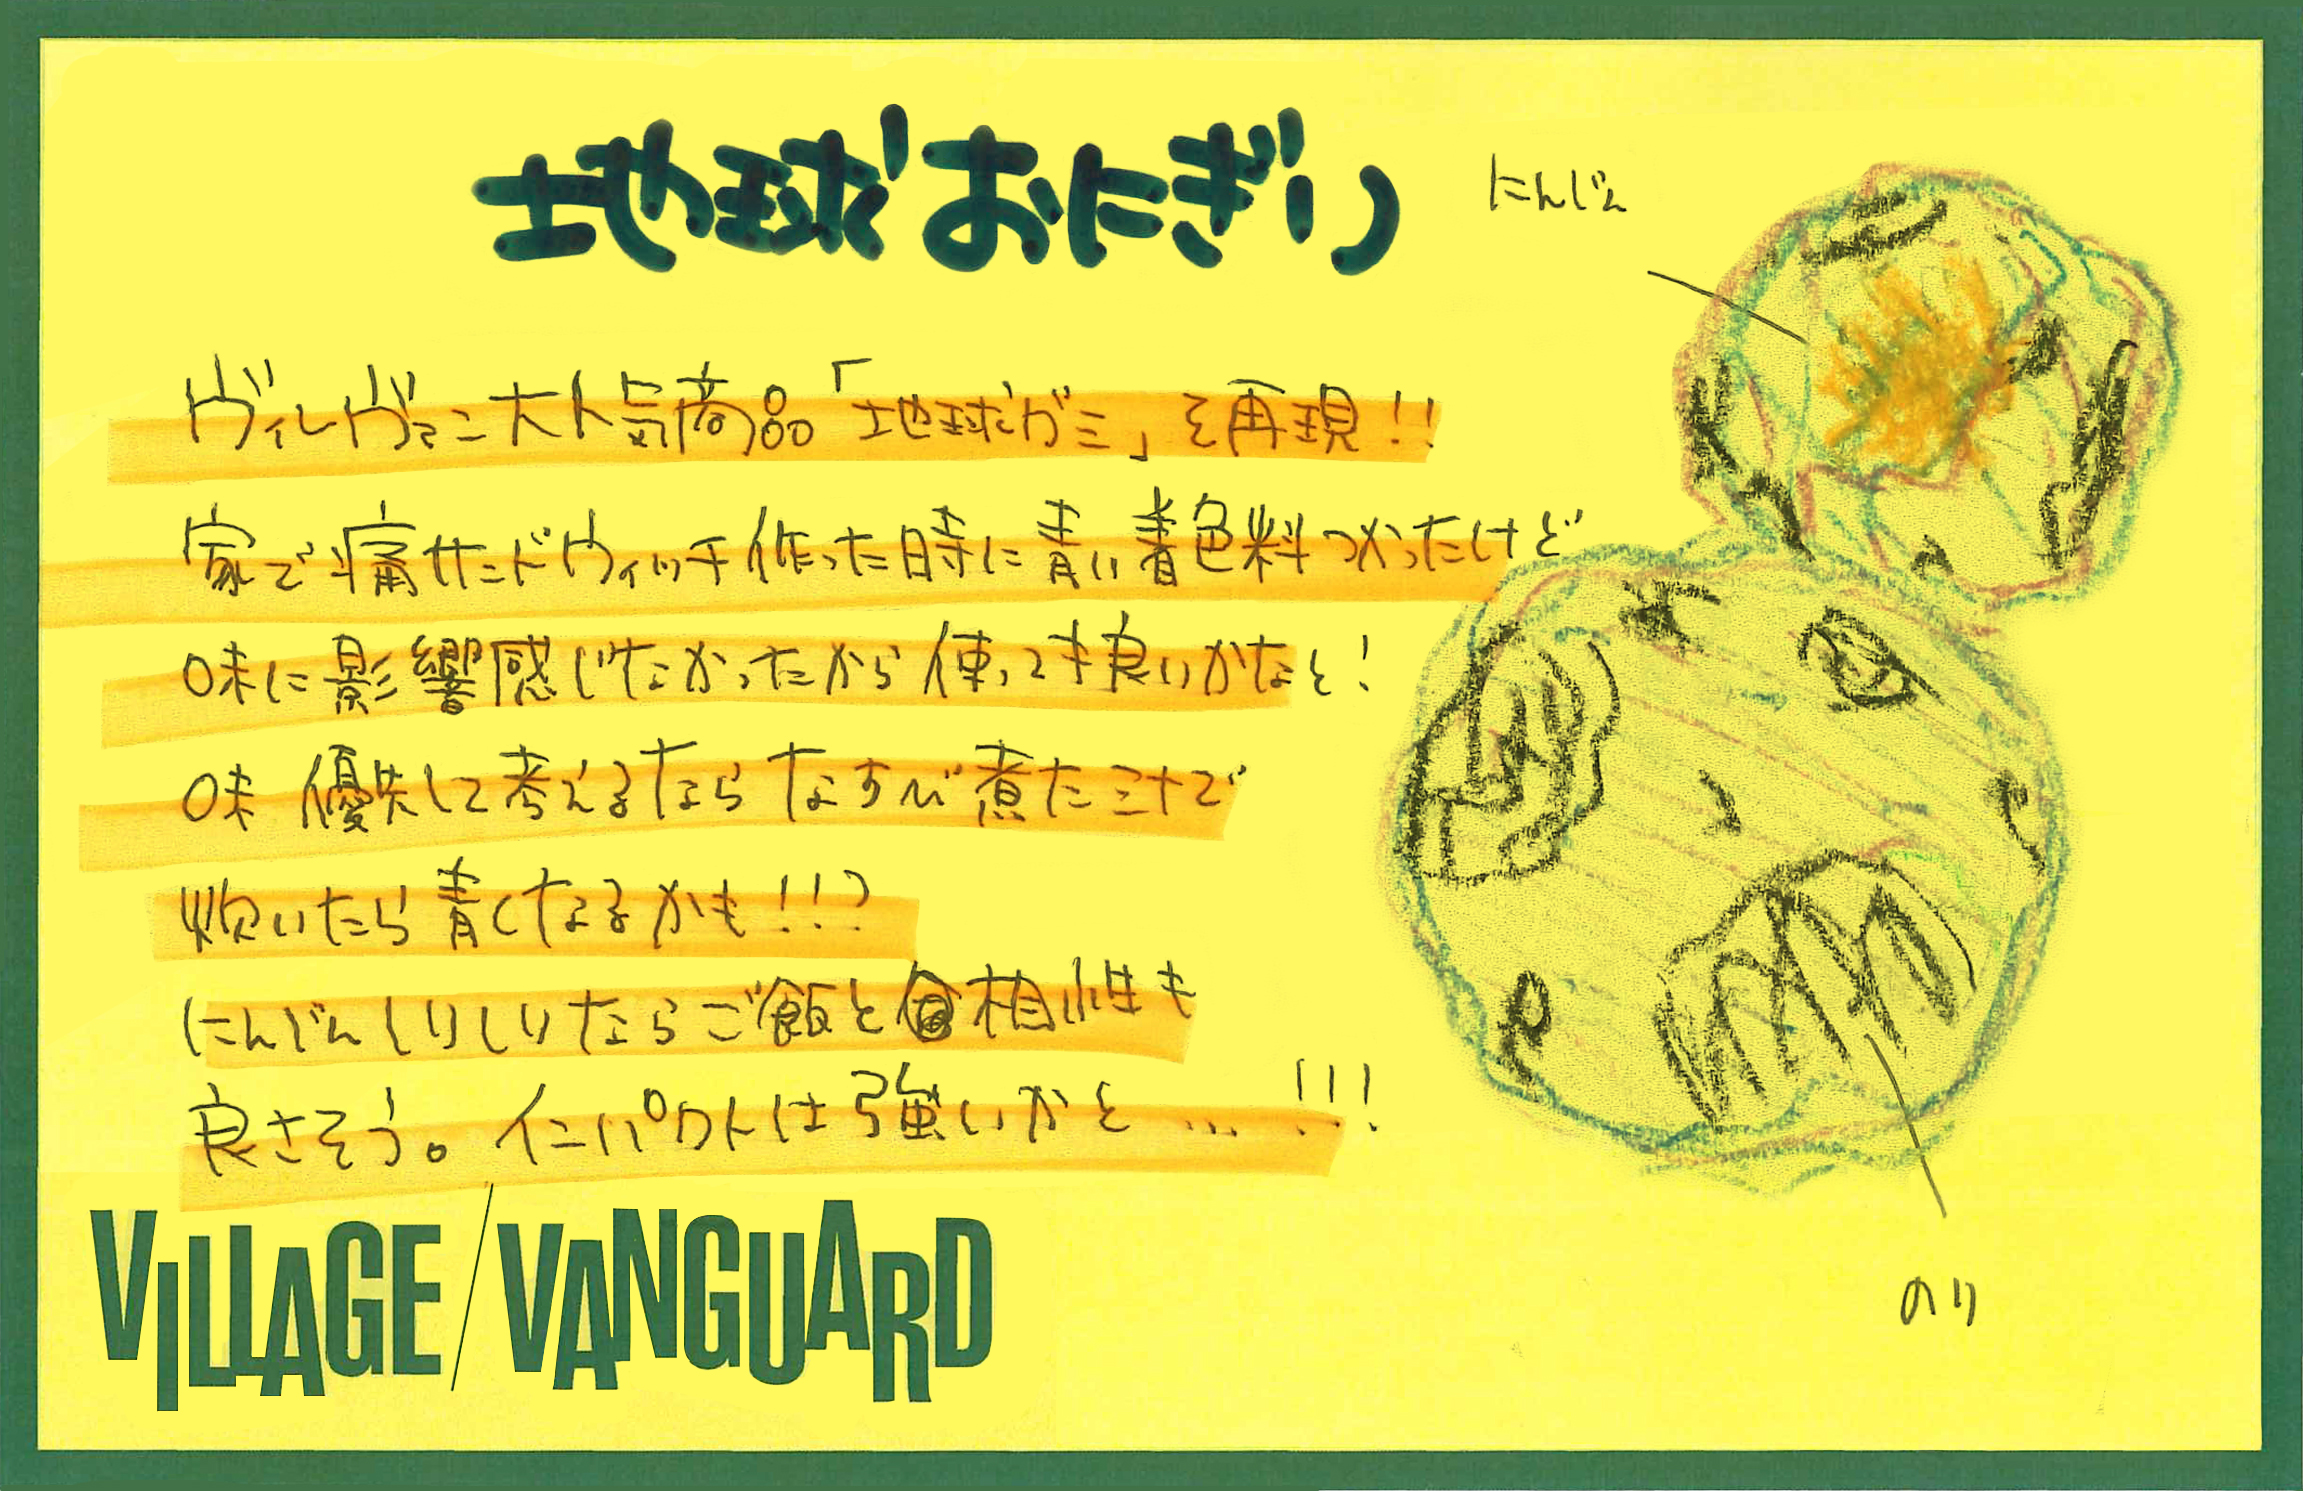 地球おにぎり
にんじん
ヴィレヴァン大人気商品「地球グミ」を再現!!
家で痛サンドウィッチ作った時に青い着色料つかったけど
味に影響感じなかったから使っても良いかなと!
味優先して考えるならなすび煮た汁で
炊いたら青くなるかも!!?
にんじんしりしりならご飯と相性も
良さそう。インパクトは強いかと...!!!
のり
VILLAGE/VANGUARD